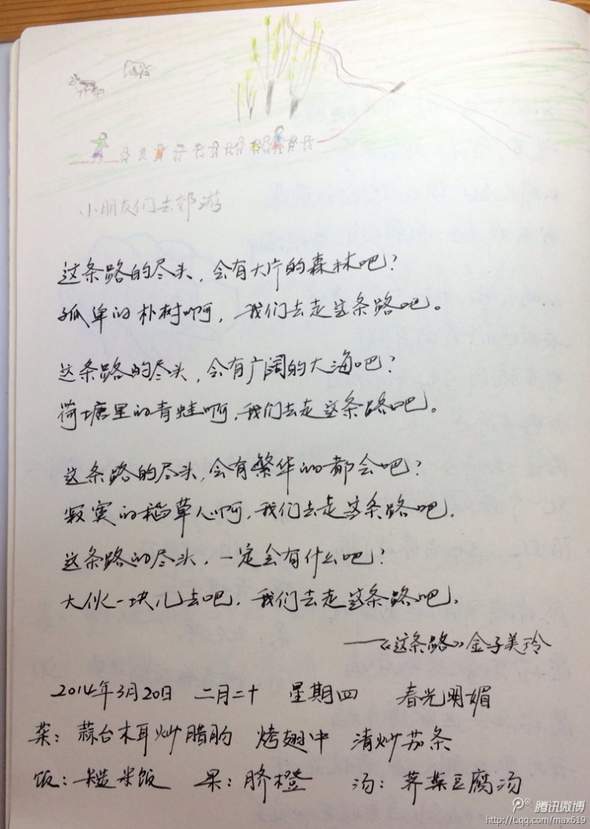 小朋友们去郊游
这条路的尽头，会有大片的森林吧？
孤单的朴树啊，我们去走这条路吧。
这条路的尽头，会有广阔的大海吧？
荷塘里的青蛙啊，我们去走这条路吧。
这条路的尽头，会有繁华的都会吧？
寂寞的稻草人啊，我们去走这条路吧。
这条路的尽头，一定会有什么吧？
大伙一块儿去吧，我们去走这条路吧。
——《这条路》金子美玲
2014年3月20日 二月二十 星期四 春光明媚
菜：蒜台木耳炒腊肉 烤翅中 清炒茄条
饭：糙米饭 果：脐橙 汤：荠菜豆腐汤
腾讯微博
http://t.qq.com/max619